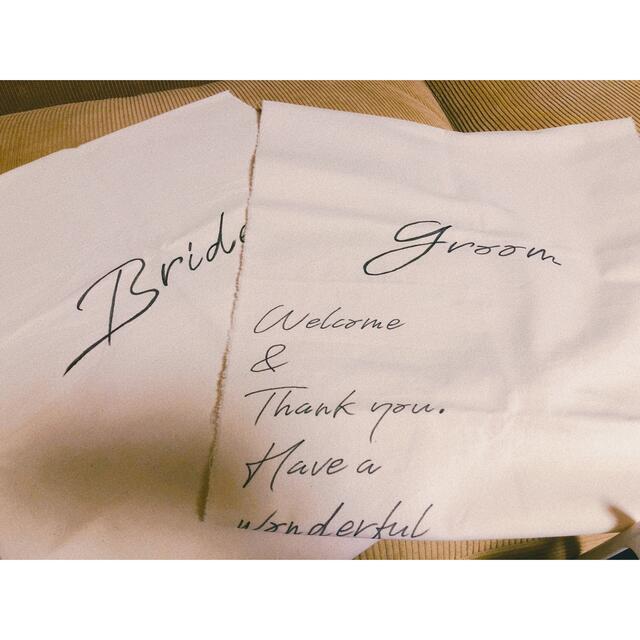 Bride
Groom
Welcome
&
Thank you.
Have a
wonderful